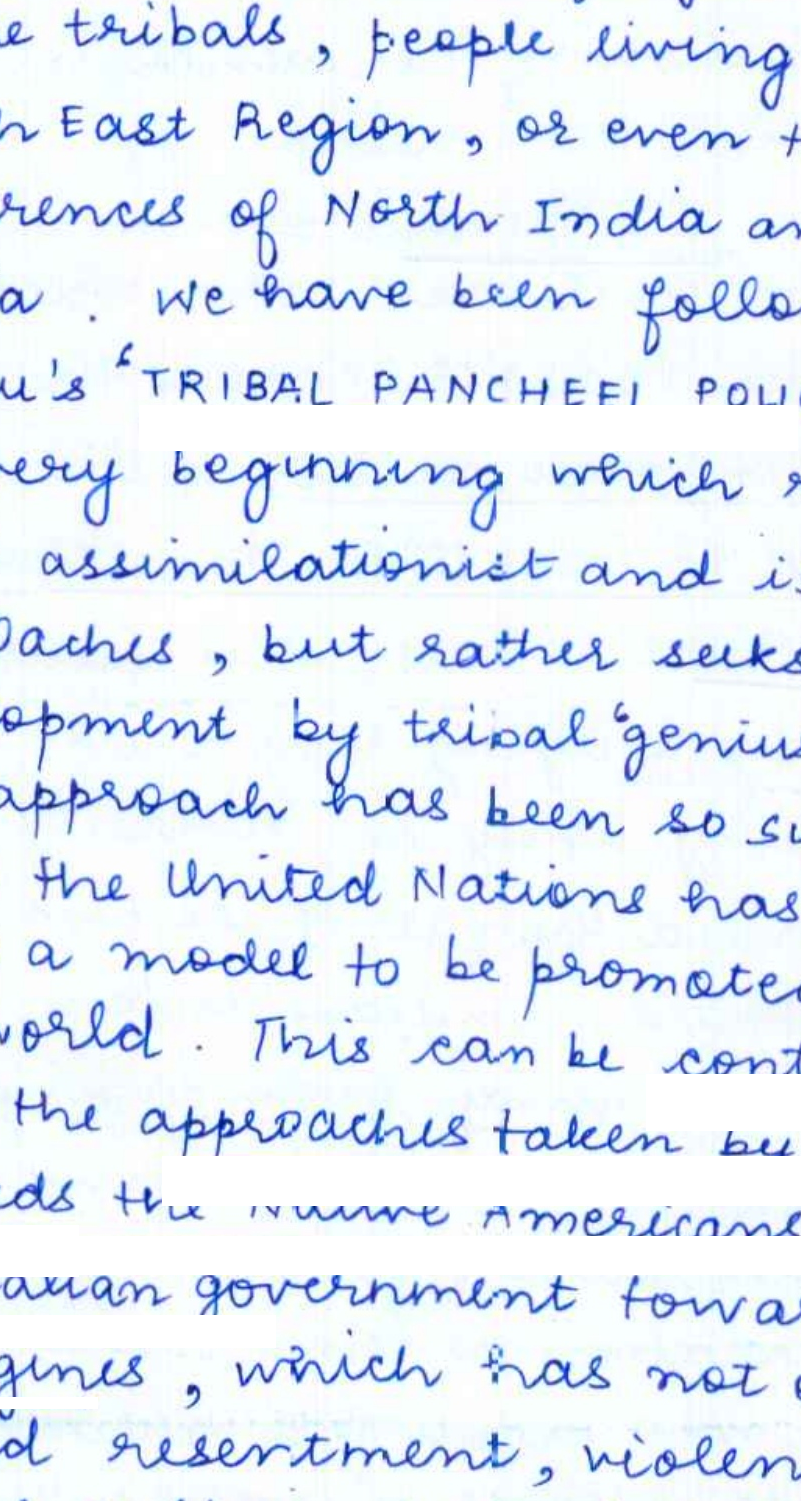 e tribals, people living
h East Region, or even t
rences of North India an
a. We have been follo
u's 'TRIBAL PANCHEEL POLI
very beginning which
assimilationist and is
oaches, but rather seeks
opment by tribal 'genius
approach has been so su
the United Nations has
a model to be promoted
world. This can be cont
the approaches taken by
ds the Native Americans
alian government towa
gines, which has not
d resentment, violen